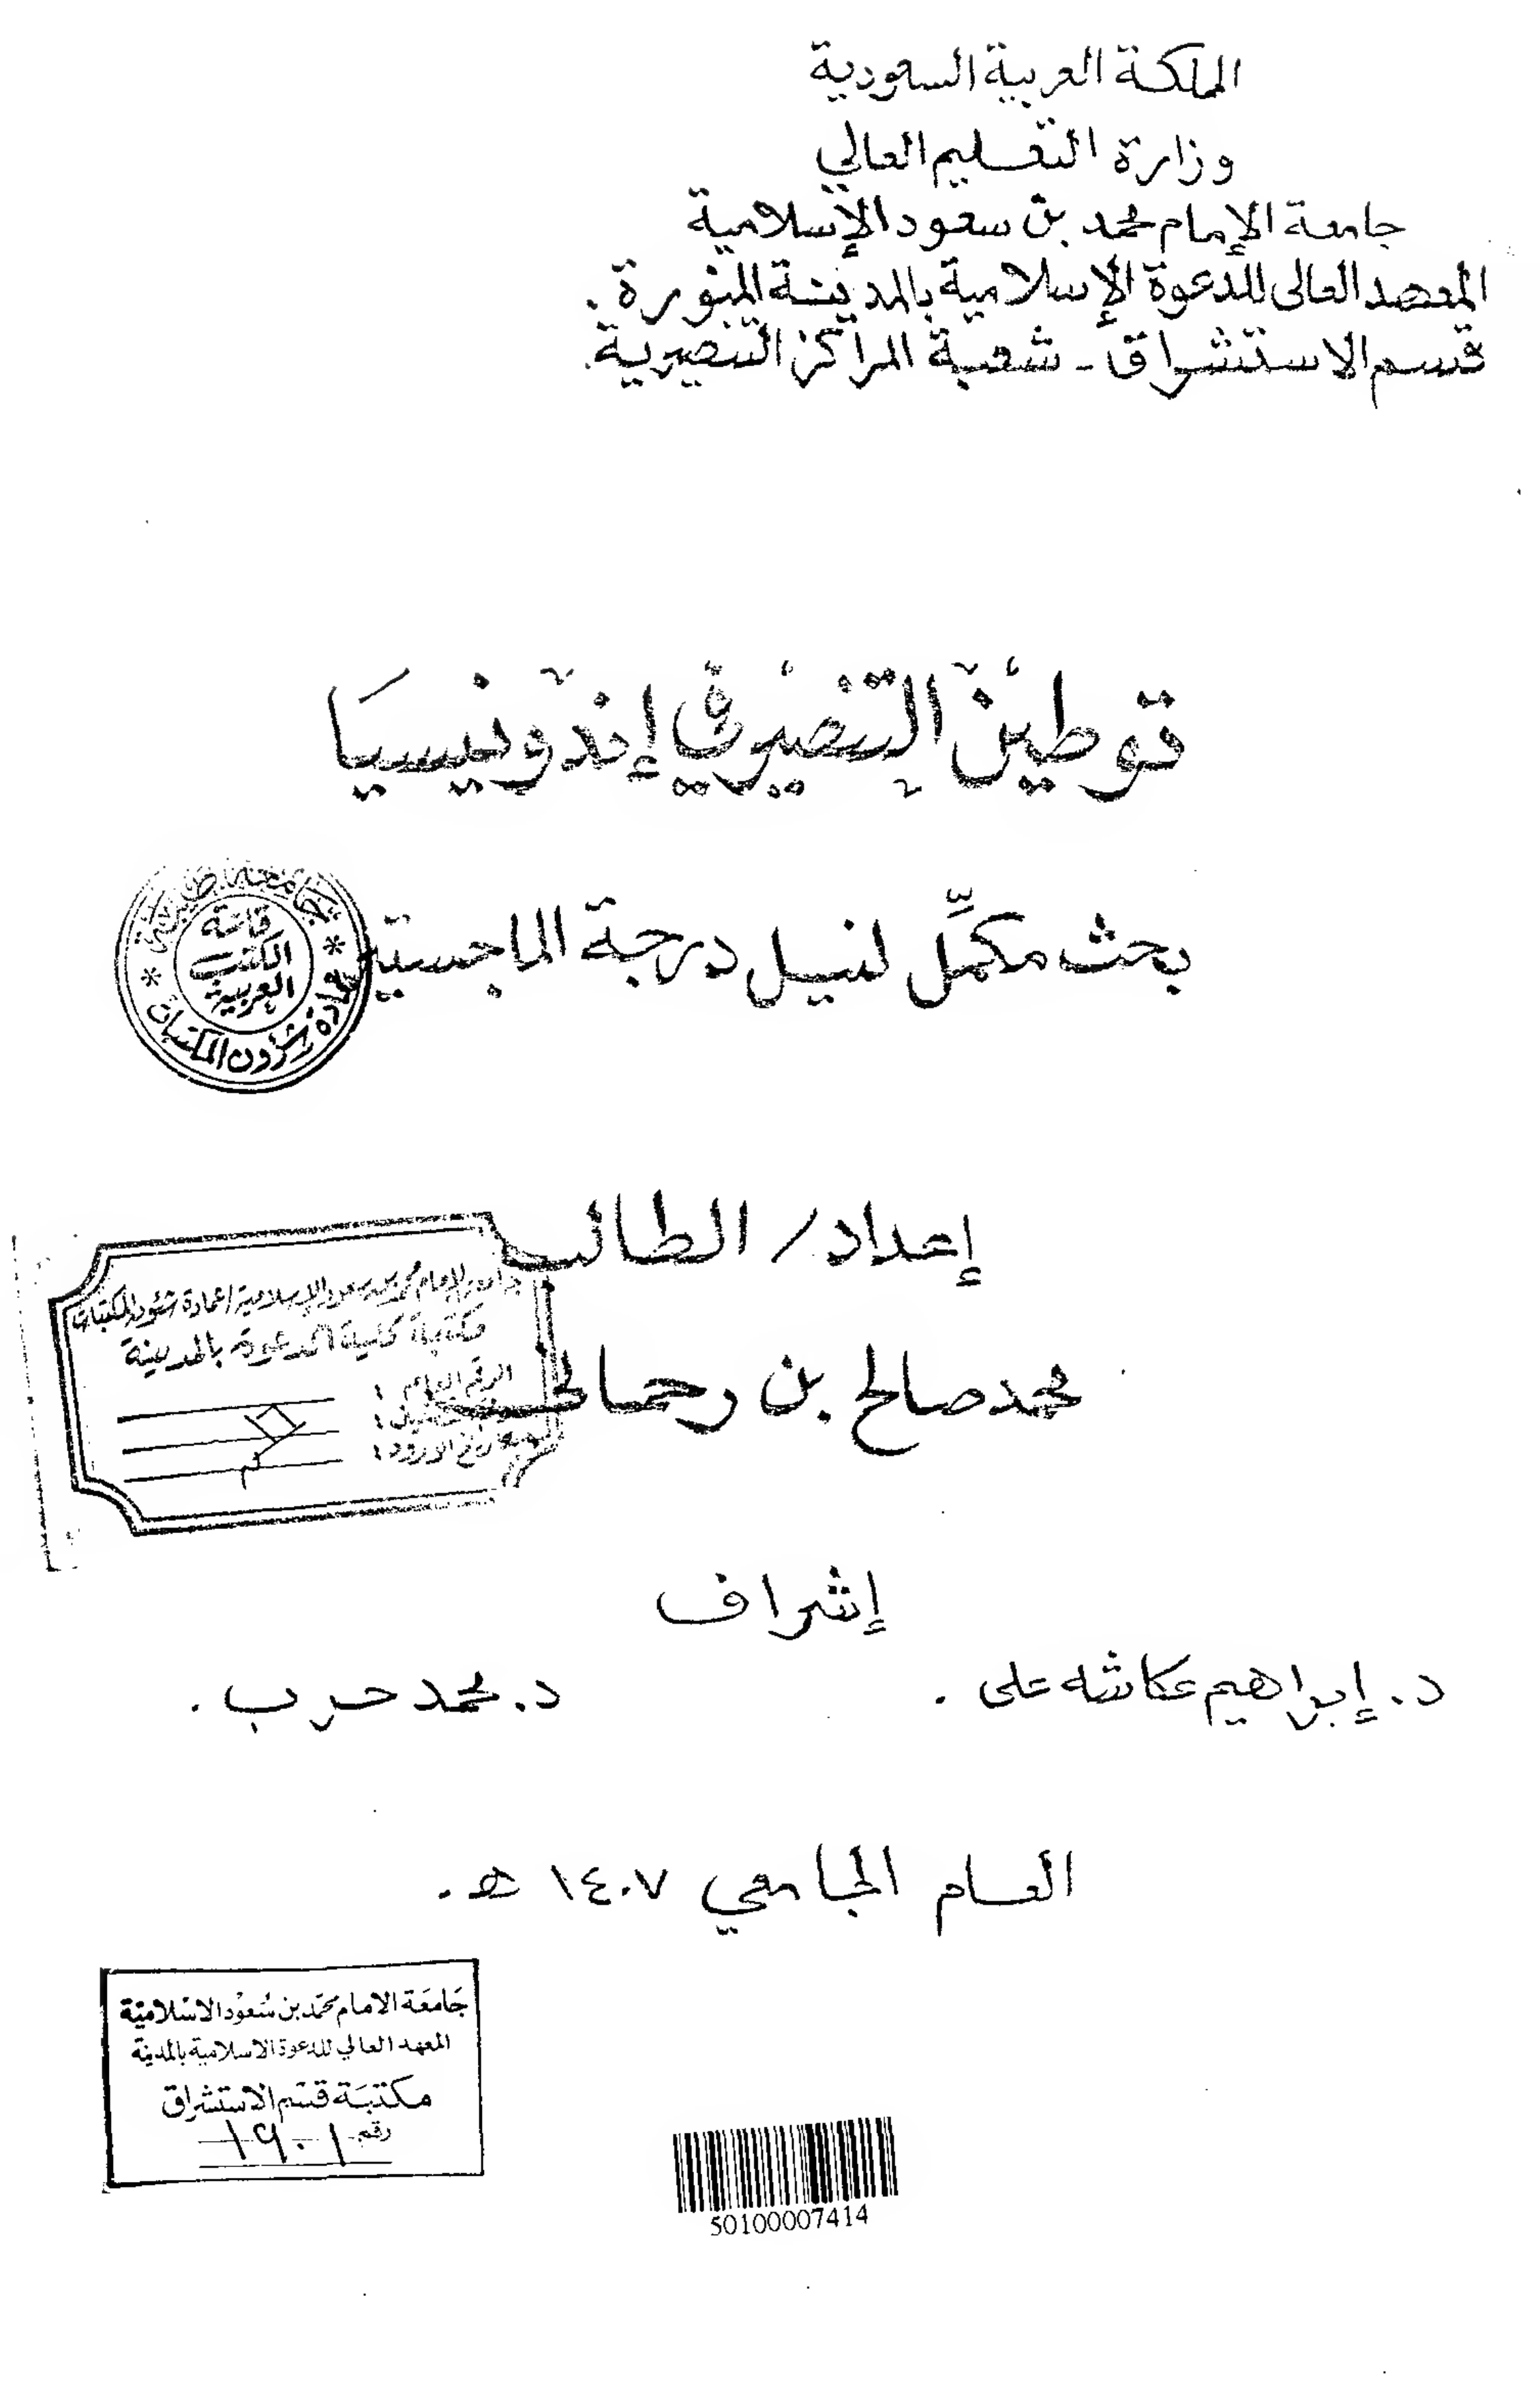 المملكة العربية السعودية
وزارة التعليم العالي
جامعة الإمام محمد بن سعود الإسلامية
المعهد العالى للدعوة الإسلامية بالمدينة المنورة.
قسم الاستشراق - شعبة المراكز التنصيرية.
توطين التنصير في إندونيسيا
بحث مكمِّل لنيل درجة الماجستير
جامعة طيبة
قاعة
الكتب
العربية
عمادة شؤون المكتبات
إعداد/ الطالب
جامعة الإمام محمد بن سعود الإسلامية / عمادة شئون المكتبات
مكتبة كلية الدعوة بالمدينة
الرقم العام :
تاريخ الورود :
محمد صالح بن رحمالحـ
إشراف
د. إبراهيم عكاشه على .
د. محمد حرب .
العام الجامعي ١٤٠٧ هـ.
جَامعَة الامام محمّد بن سُعوُد الاسْلاميّة
المعهد العالي للدعوة الاسلامية بالمدينة
مكتبَة قسْم الاستشراق
رقم ١٩٠١
50100007414